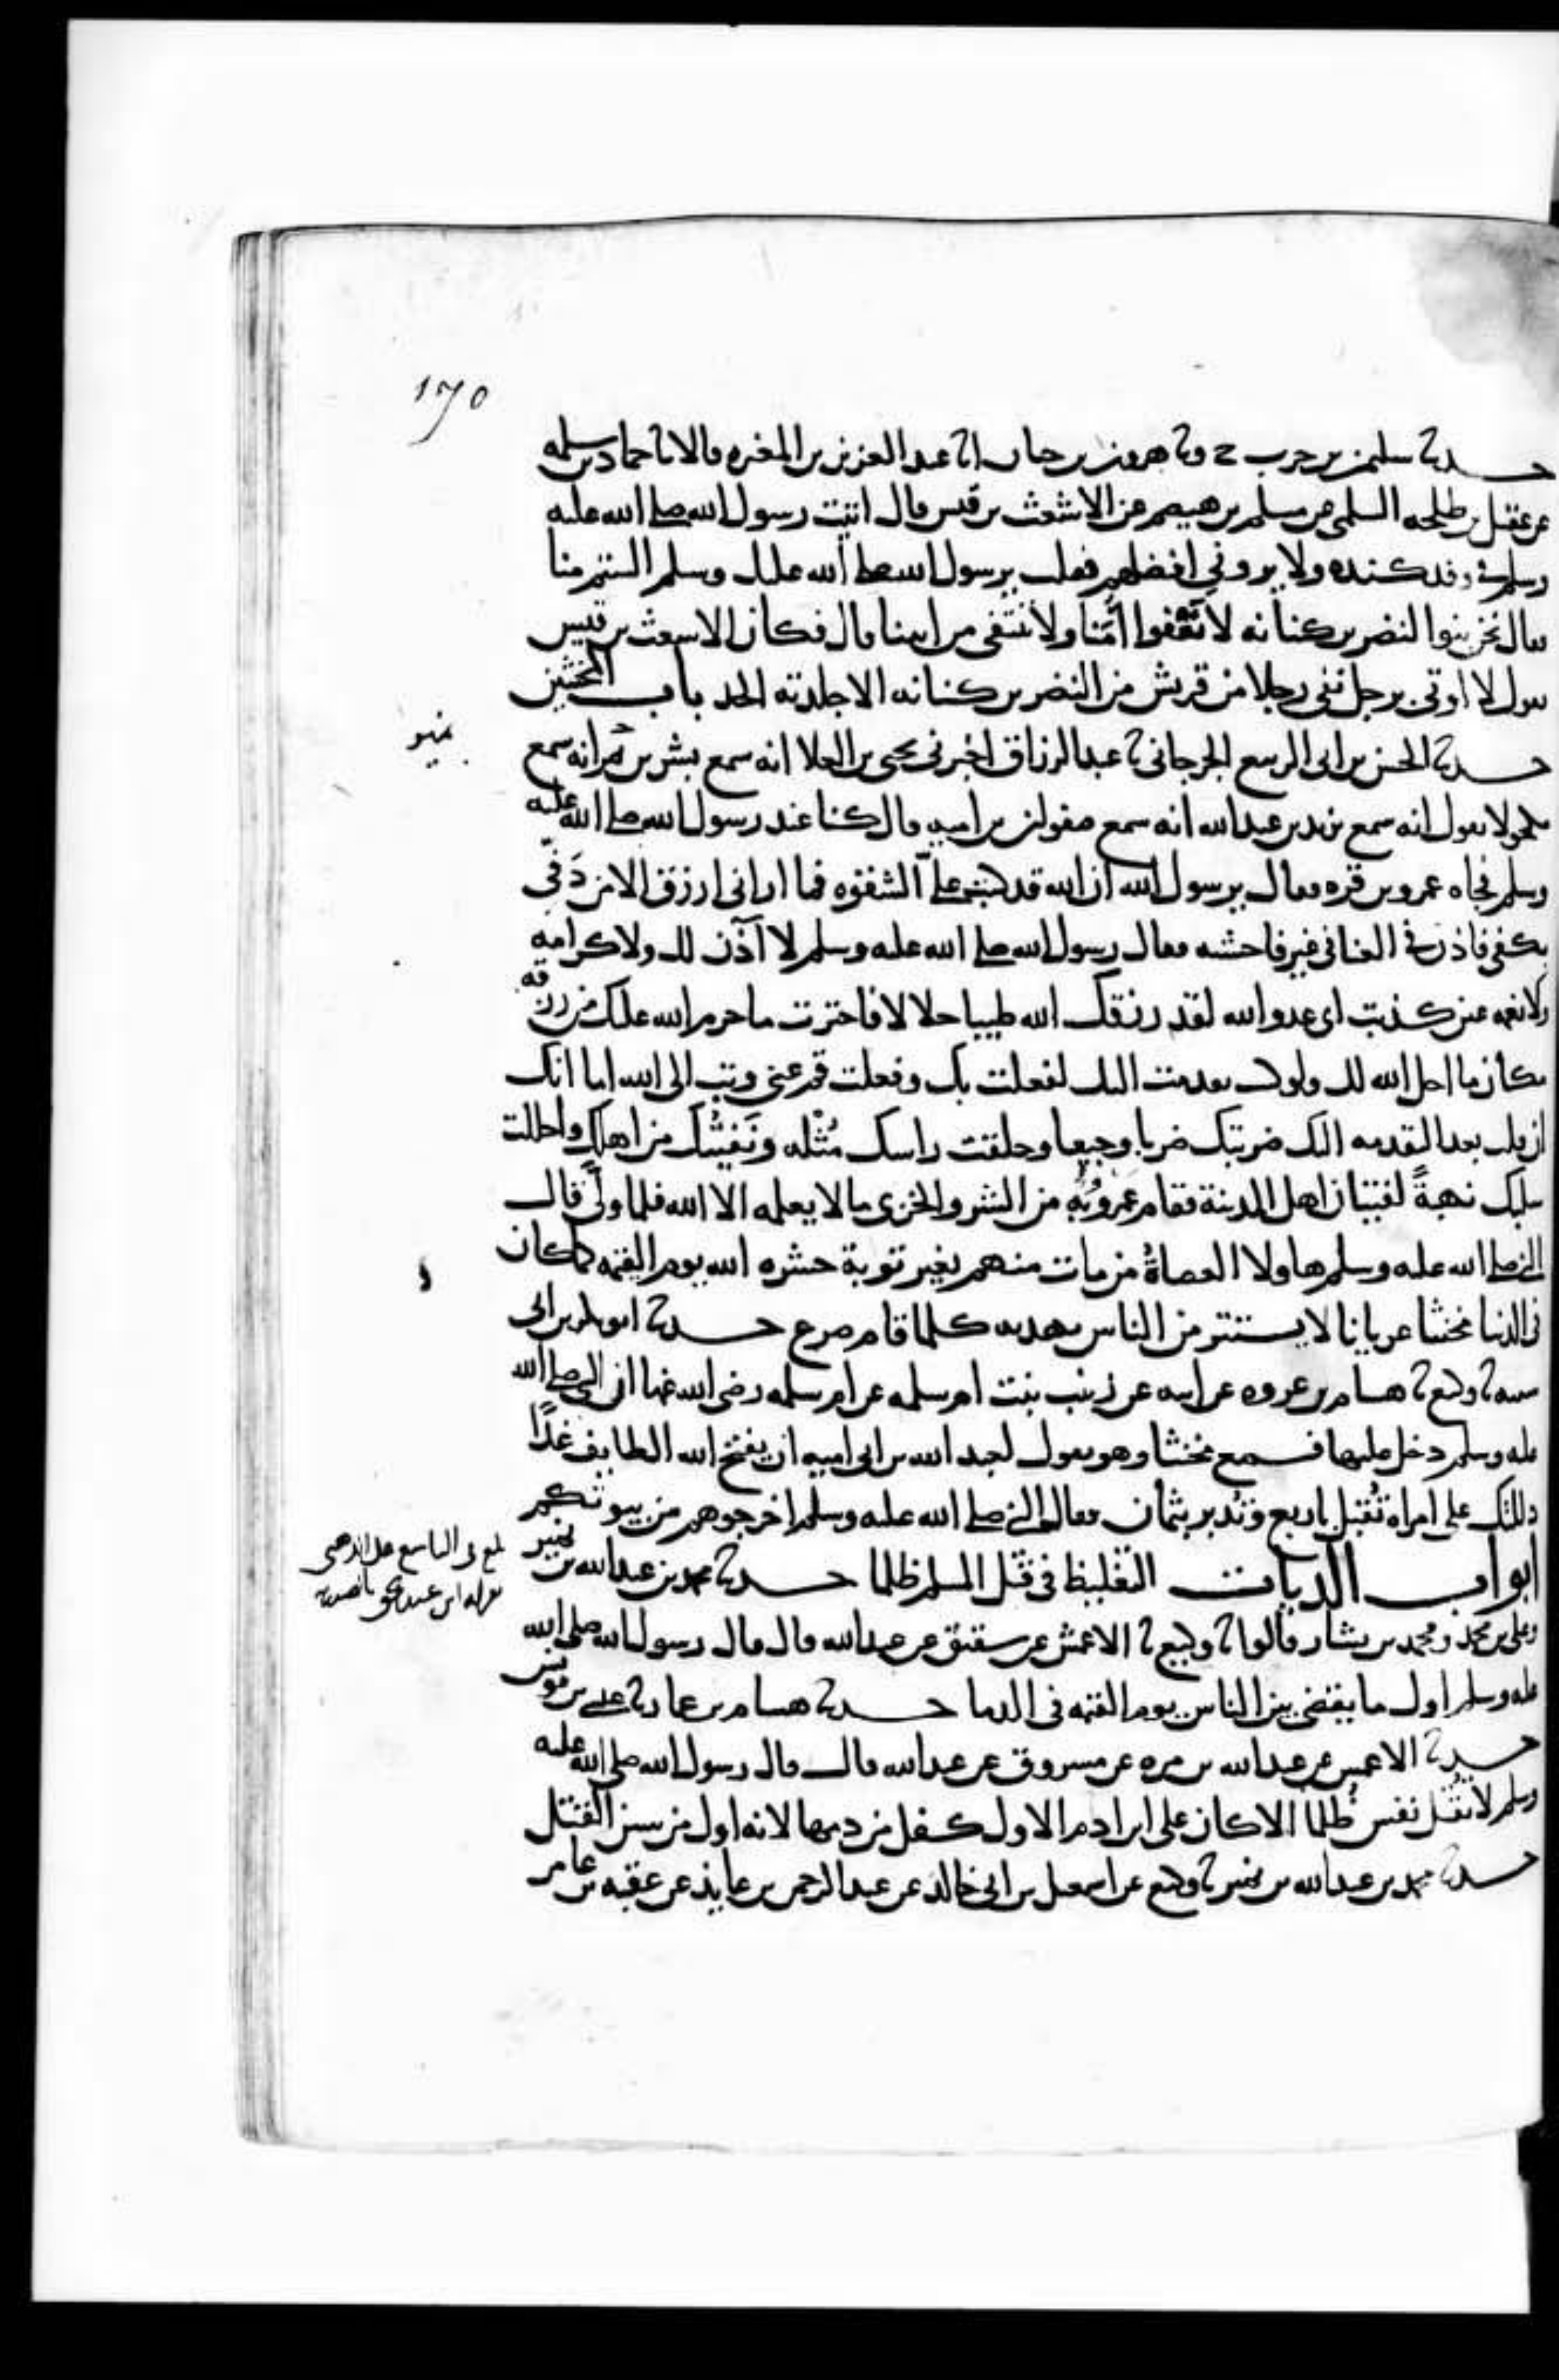 170
حدثنا سليمن بن حرب ح وثنا هرون بن حيان انا عبد العزيز بن المغيره قالا ثنا حماد بن سلمه
عن عقيل بن طلحه السلمي عن مسلم بن هيصم عن الاشعث بن قيس قال اتيت رسول الله صلى الله عليه
وسلم في وفد كنده ولا يروني افضلهم فقلت يرسول الله صلى الله عليك وسلم الستم منا
فقال نحن بنوا النضر بن كنانه لا نقفوا امنا ولا ننتفى من ابينا قال فكان الاشعث بن قيس
يقول لا اوتى برجل نفى رجلا من قريش من النضر بن كنانه الا جلدته الحد باب المخنثين
حدثنا الحسن بن ابى الربيع الجرجاني ثنا عبد الرزاق اخبرني يحيى بن العلا انه سمع بشر بن نمير انه سمع
مكحولا يقول انه سمع يزيد بن عبد الله انه سمع صفوان بن اميه قال كنا عند رسول الله صلى الله عليه
وسلم فجاه عمرو بن قره فقال يرسول الله ان الله قد كتب علي الشقوه فما اراني ارزق الا من دفى
بكفى فاذن لى في الغنا في غير فاحشه فقال رسول الله صلى الله عليه وسلم لا آذن لك ولا كرامه
ولا نعمه عين كذبت اى عدو الله لقد رزقك الله طيبا حلالا فاخترت ما حرم الله عليك من رزقه
مكان ما احل الله لك ولو كنت تقدمت اليك لفعلت بك وفعلت قم عني وتب الى الله اما انك
ان فعلت بعد التقدمه اليك ضربتك ضربا وجيعا وحلقت راسك مُثْله ونَفَيتُك من اهلك واحللت
سلبك نهبةً لفتيان اهل المدينة فقام عمرو وبه من الشر والخزى ما لا يعلمه الا الله فلما ولى قال
النبي صلى الله عليه وسلم هاولا العصاة من مات منهم بغير توبة حشره الله يوم القيمه كما كان
في الدنيا مخنثا عريانا لا يستتر من الناس بهدبه كلما قام صرع حدثنا ابو بكر بن ابى
شيبه ثنا وكيع ثنا هشام بن عروه عن ابيه عن زينب بنت ام سلمه عن ام سلمه رضى الله عنها ان النبي صلى الله
عليه وسلم دخل عليها فسمع مخنثا وهو يقول لعبد الله بن ابى اميه ان يفتح الله الطايف غدًا
دللتك على امراة تُقبل باربع وتُدبر بثمان فقال النبي صلى الله عليه وسلم اخرجوهم من بيوتكم
ابواب الديات التغليظ في قتل المسلم ظلما حدثنا محمد بن عبد الله بن نمير
وعلى بن محمد ومحمد بن بشار قالوا ثنا وكيع ثنا الاعمش عن شقيق عن عبد الله قال قال رسول الله صلى الله
عليه وسلم اول ما يقضى بين الناس يوم القيمه في الدما حدثنا هشام بن عمار ثنا عيسى بن يونس
حدثنا الاعمش عن عبد الله بن مره عن مسروق عن عبد الله قال قال رسول الله صلى الله عليه
وسلم لا تقتل نفس ظلما الا كان على ابن ادم الاول كفل من دمها لانه اول من سن القتل
حدثنا محمد بن عبد الله بن نمير ثنا وكيع عن اسمعيل بن ابى خالد عن عبد الرحمن بن عايذ عن عقبه بن عامر
نمير